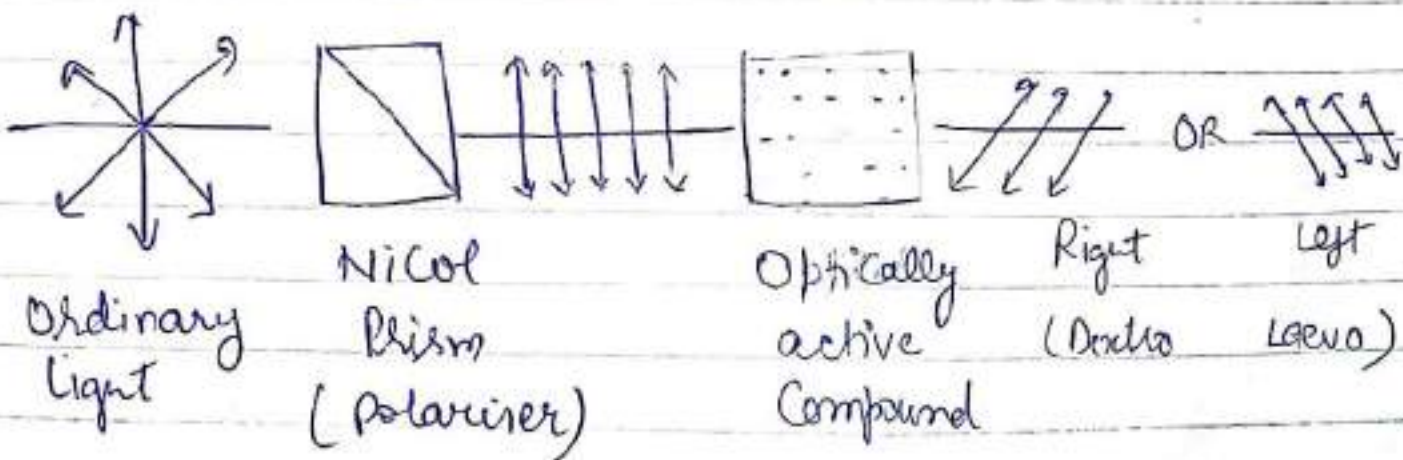 OR
Ordinary light
Nicol Prism (Polariser)
Optically active Compound
Right (Dextro
Left Laevo)